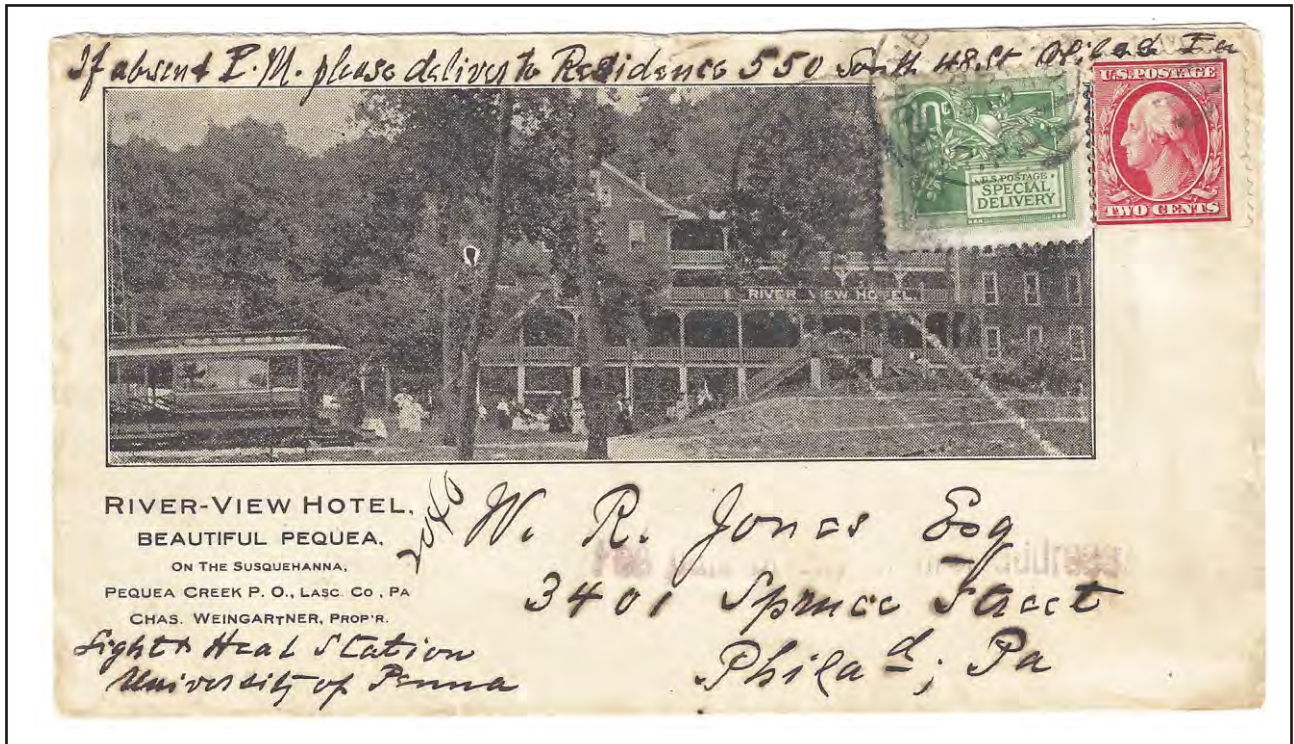 If absent P.M. please deliver to Residence 550 South 48.St Philad Pa
10¢
U.S. POSTAGE
SPECIAL
DELIVERY
U.S. POSTAGE
TWO CENTS
RIVER VIEW HOTEL.
RIVER-VIEW HOTEL,
BEAUTIFUL PEQUEA,
ON THE SUSQUEHANNA,
PEQUEA CREEK P. O., LASC. CO, PA
CHAS. WEINGARTNER, PROP'R.
Light & Heat Station
University of Penna
2040
W. R. Jones Esq
3401 Spruce Street
Philad; Pa